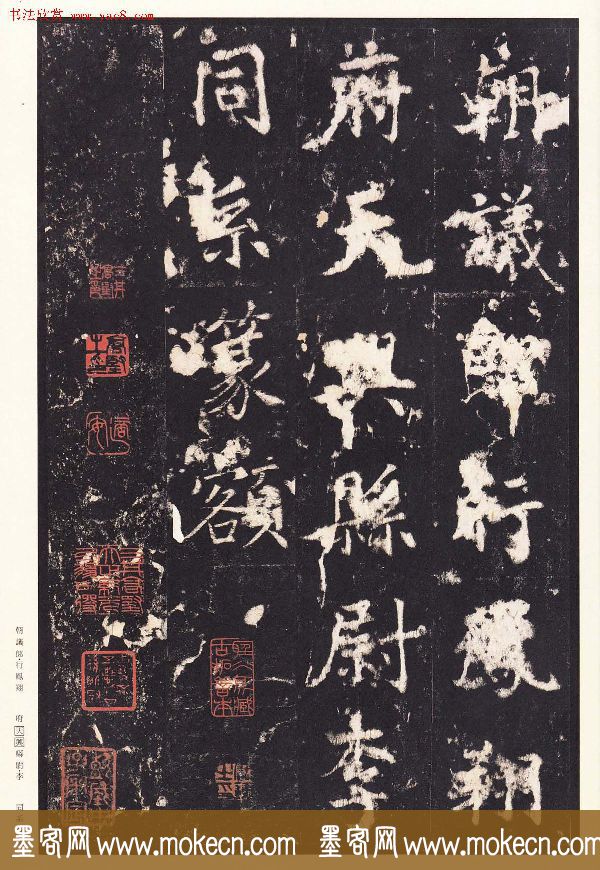 书法欣赏 www.yac8.com
朝議郎行鳳翔
府天興縣尉李
同系篆額
朝議郎・行鳳翔 府天興縣尉・李 同
墨客网 www.mokecn.com 墨客网 www.mokecn.com